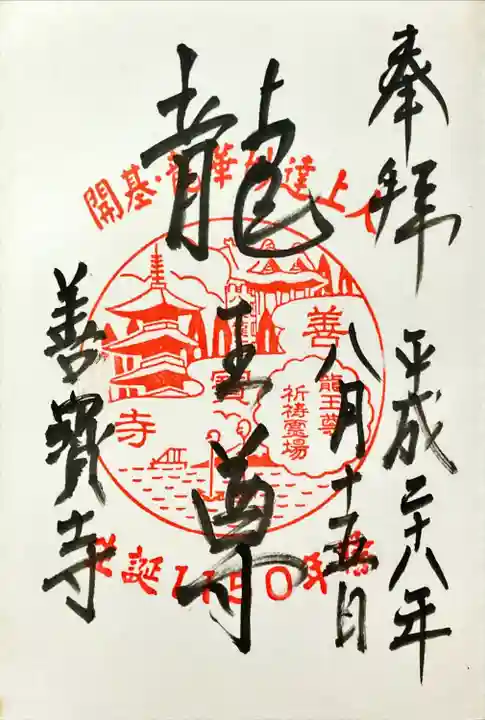 奉拝
平成二十八年
八月十五日
龍王尊
善寳寺
開基・龍華妙達上人
善寳寺
龍王尊
祈祷霊場
誕1150年